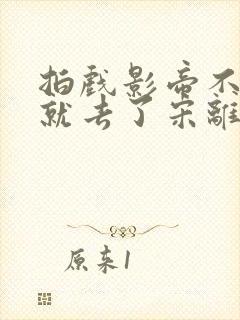 拍戏影帝不
就去了宋離
原来1